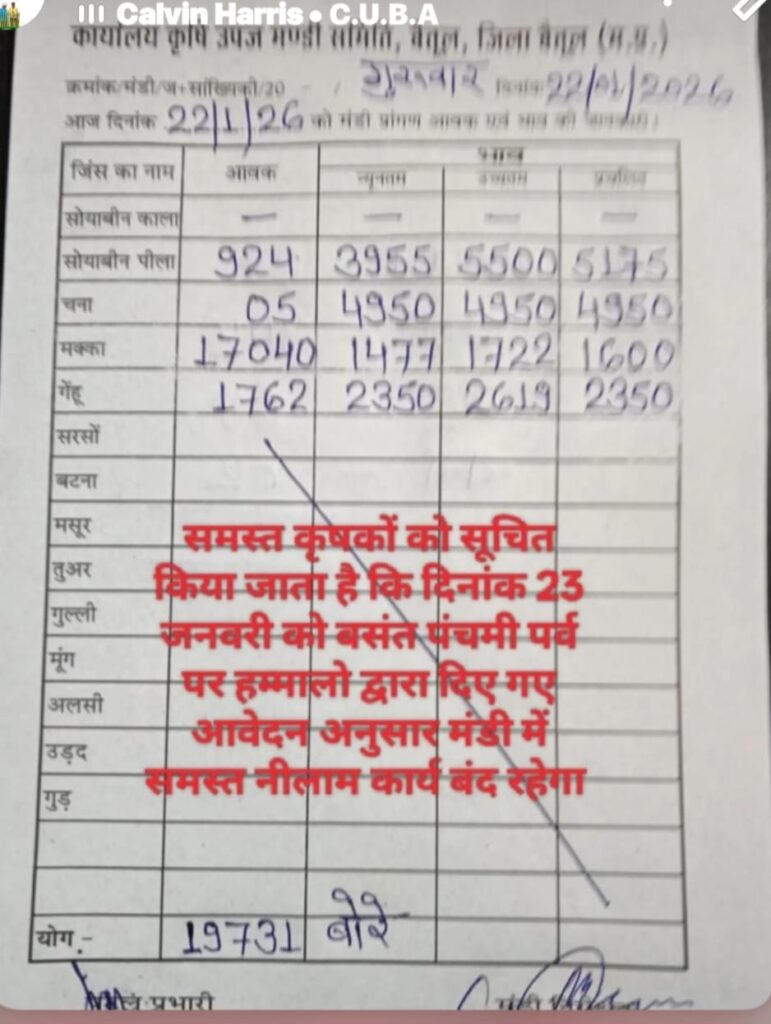 Calvin Harris • C.U.B.A
कार्यालय कृषि उपज मण्डी समिति, बैतूल, जिला बैतूल (म.प्र.)
क्रमांक/मंडी/ज.सांख्यिकी/20 - / गुरुवार दिनांक 22/01/2026
आज दिनांक 22/1/26 को मंडी प्रांगण आवक एवं भाव की जानकारी।
जिंस का नाम आवक भाव
न्यूनतम उच्चतम प्रचलित
सोयाबीन काला — — — —
सोयाबीन पीला 924 3955 5500 5175
चना 05 4950 4950 4950
मक्का 17040 1477 1722 1600
गेंहू 1762 2350 2619 2350
सरसों
बटना
मसूर
तुअर
गुल्ली
मूंग
अलसी
उड़द
गुड़
समस्त कृषकों को सूचित
किया जाता है कि दिनांक 23
जनवरी को बसंत पंचमी पर्व
पर हम्मालो द्वारा दिए गए
आवेदन अनुसार मंडी में
समस्त नीलाम कार्य बंद रहेगा
योग.- 19731 बोरे
प्रभारी मंडी